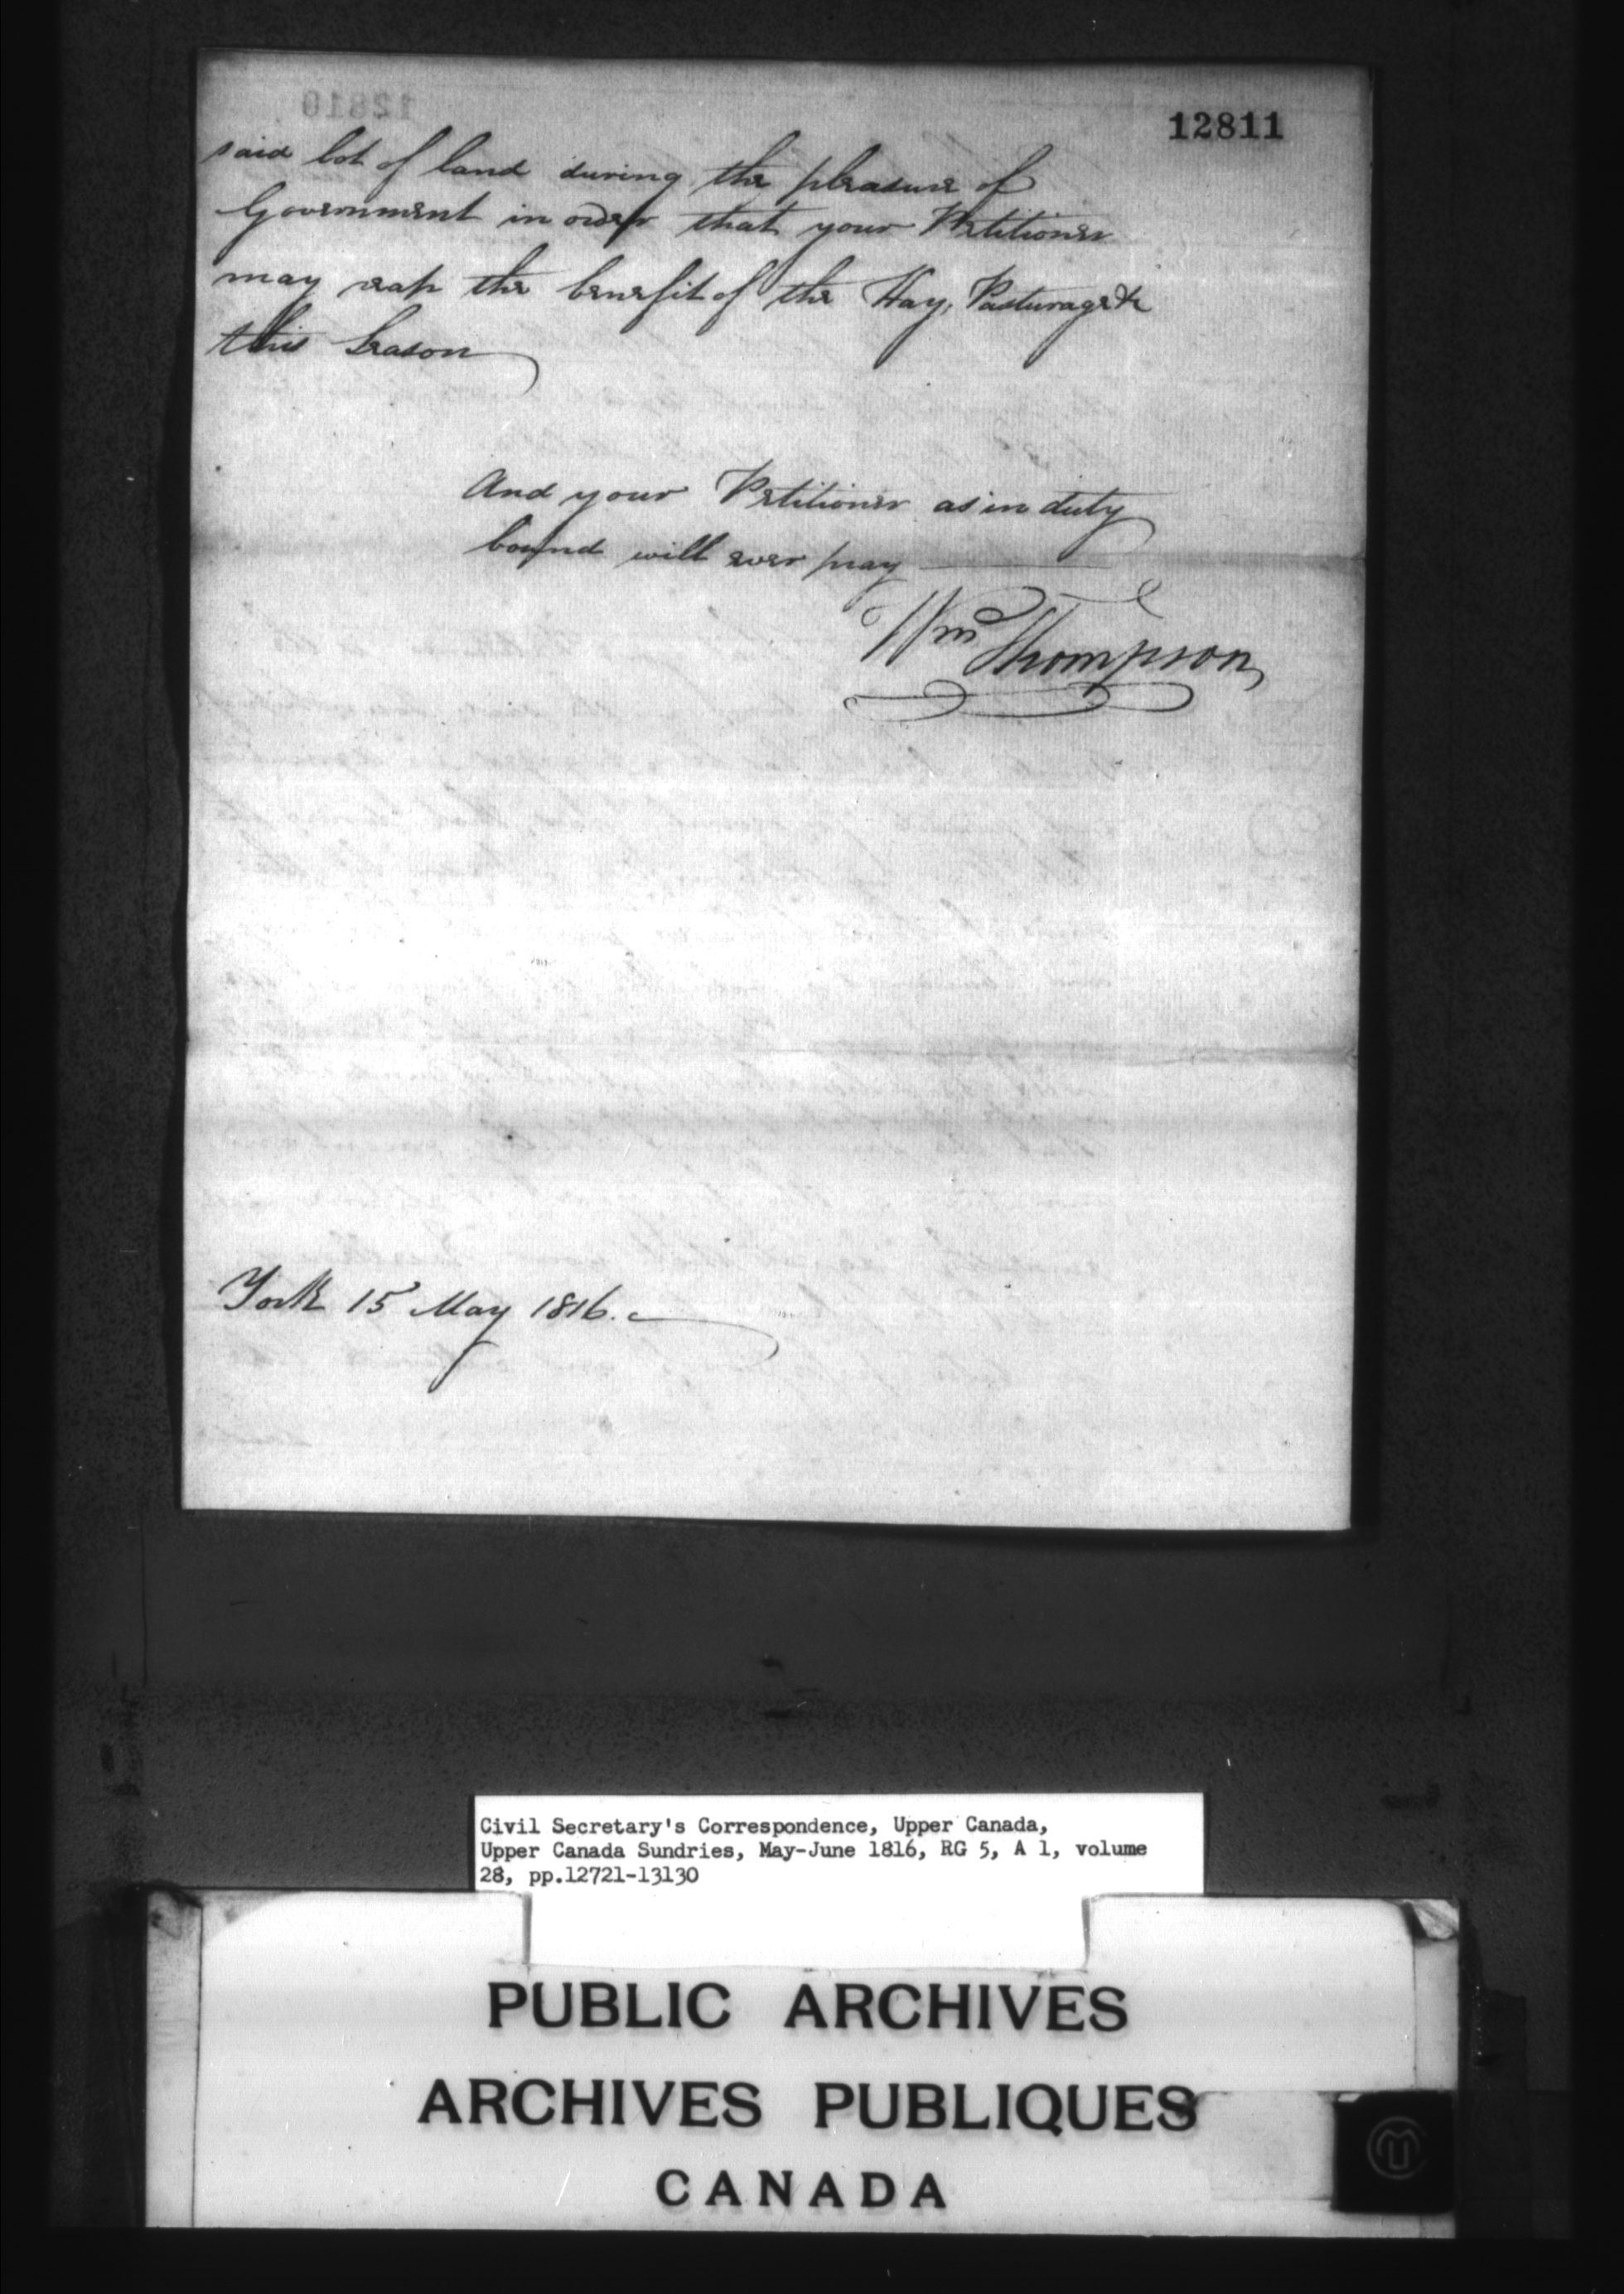 12811
said lot of land during the pleasure of
Government in order that your Petitioner
may reap the benefit of the Hay, Pasturage &c
this Season
And your Petitioner as in duty
bound will ever pray
Wm Thompson
York 15 May 1816.
Civil Secretary's Correspondence, Upper Canada,
Upper Canada Sundries, May-June 1816, RG 5, A 1, volume
28, pp.12721-13130
PUBLIC ARCHIVES
ARCHIVES PUBLIQUES
CANADA